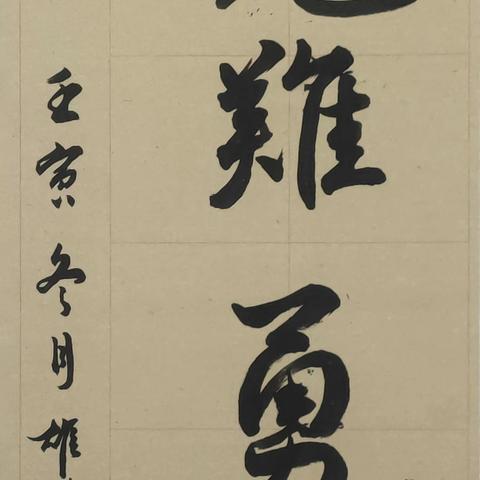 難勇
壬寅冬月雄